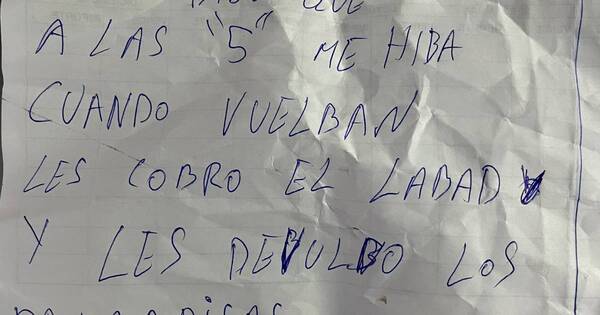 QUE
A LAS "5" ME HIBA
CUANDO VUELBAN
LES COBRO EL LABADO
Y LES DEVULBO LOS